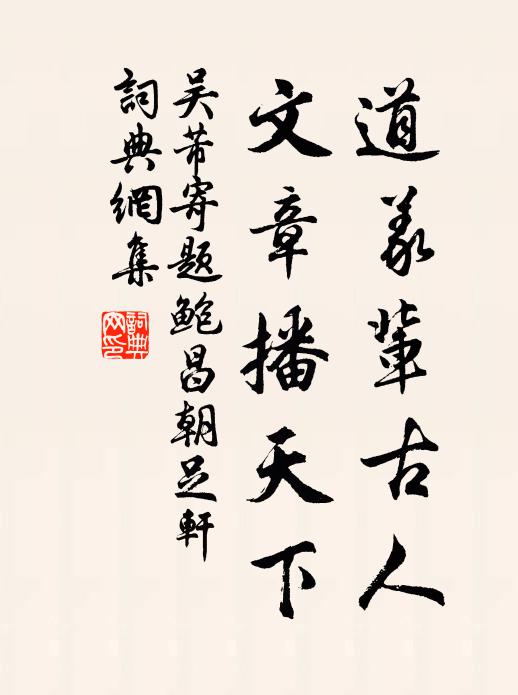 道義輩古人
文章播天下
吴芾寄題鲍昌朝足軒
詞典網集
詞典網印